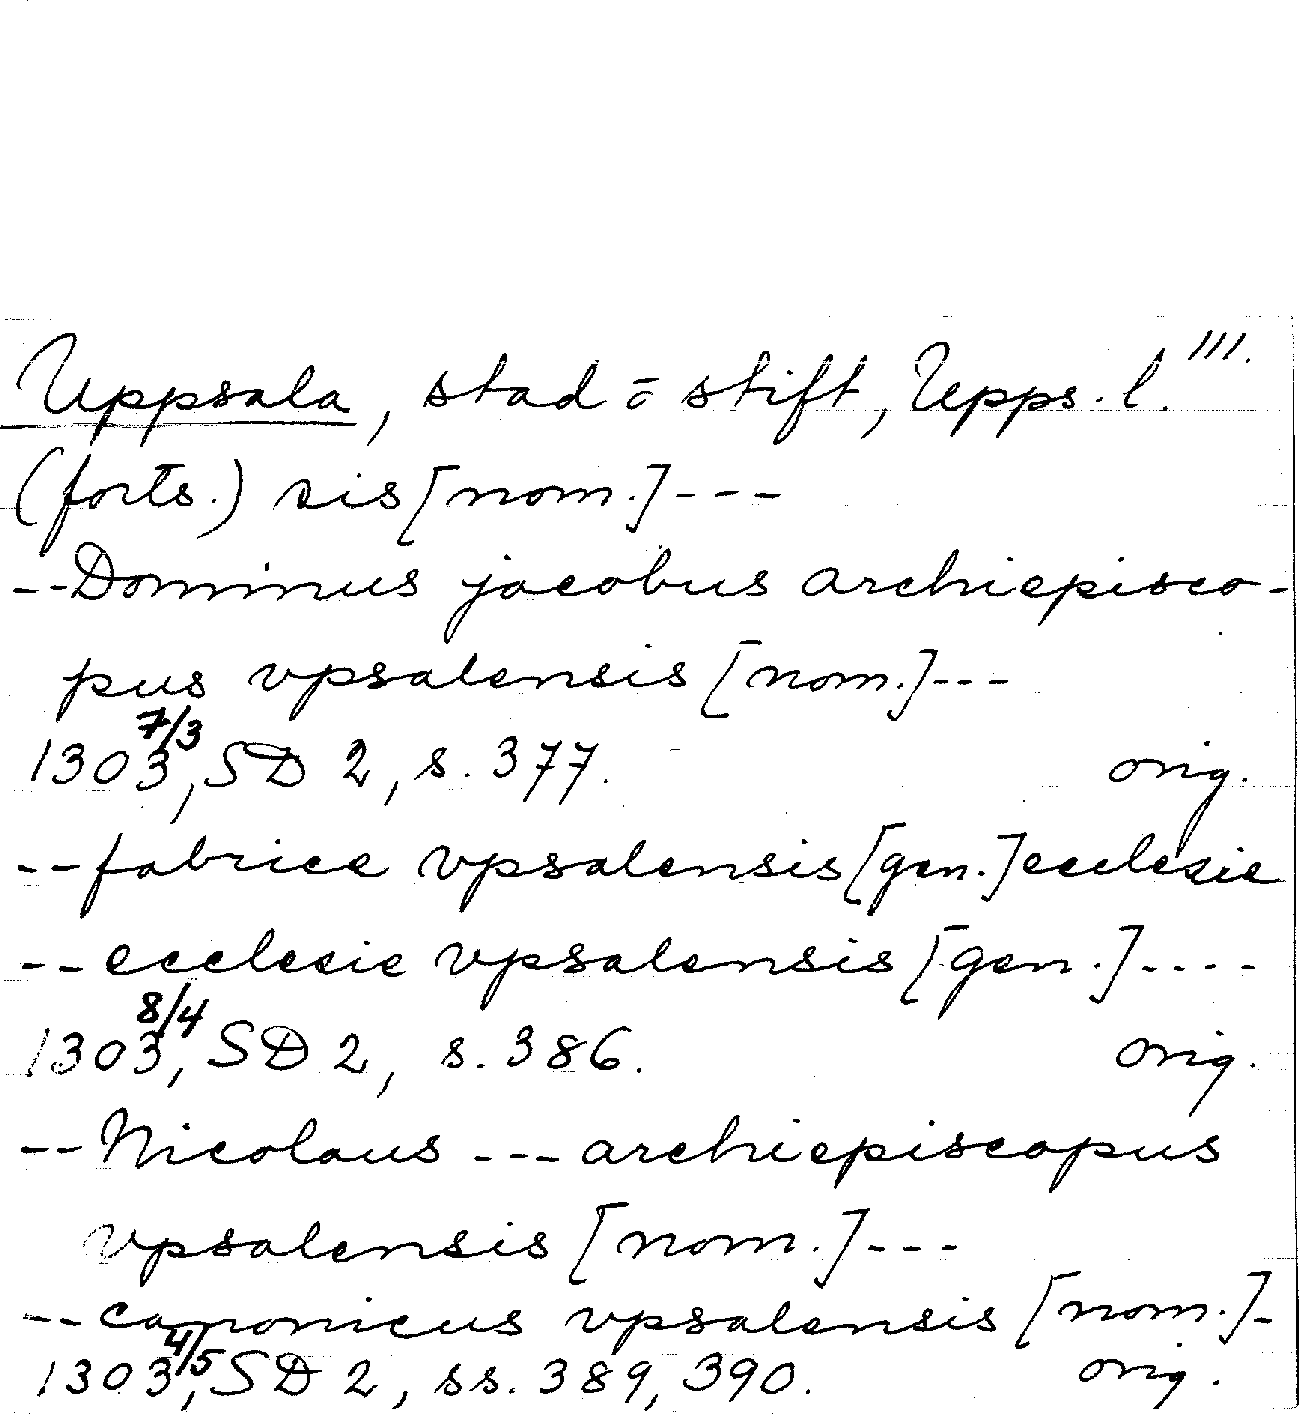 Uppsala, stad o stift, Upps. l. III.
(forts.) sis [nom.] ---
-- Dominus jacobus archiepisco-
pus vpsalensis [nom.] ---
1303 7/3, SD 2, s. 377. orig.
-- fabrice vpsalensis [gen.] ecclesie
-- ecclesie vpsalensis [gen.] ----
1303 8/4, SD 2, s. 386. orig.
-- Nicolaus --- archiepiscopus
vpsalensis [nom.] ---
-- canonicus vpsalensis [nom.] -
1303 4/5, SD 2, ss. 389, 390. orig.